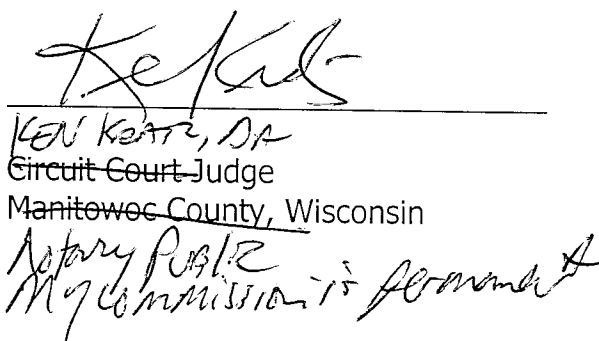 KEN KRATZ, DA
Circuit Court Judge
Manitowoc County, Wisconsin
Notary Public
My commission is permanent